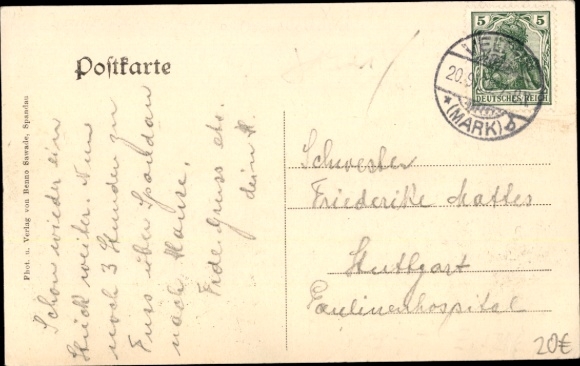 Postkarte
Phot. u. Verlag von Benno Sawade, Spandau
Schon wieder ein
Stück weiter. Nun
noch 3 Stunden zu
Fuss über Spandau
nach Hause.
Frdl. Gruss etc.
dein H.
5 5
DEUTSCHES REICH
20.9
*(MARK)
Schwester
Friederike Mattes
Stuttgart
Paulinenhospital
20€